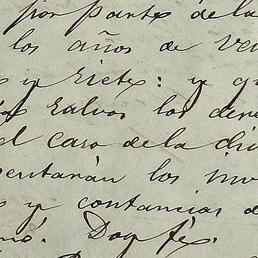 por parte de la
los años de ven
s y siete: y qu
salvos los dere
l caso de la divi
sentarán los inv
s y contancias d
mó. Doy fé.